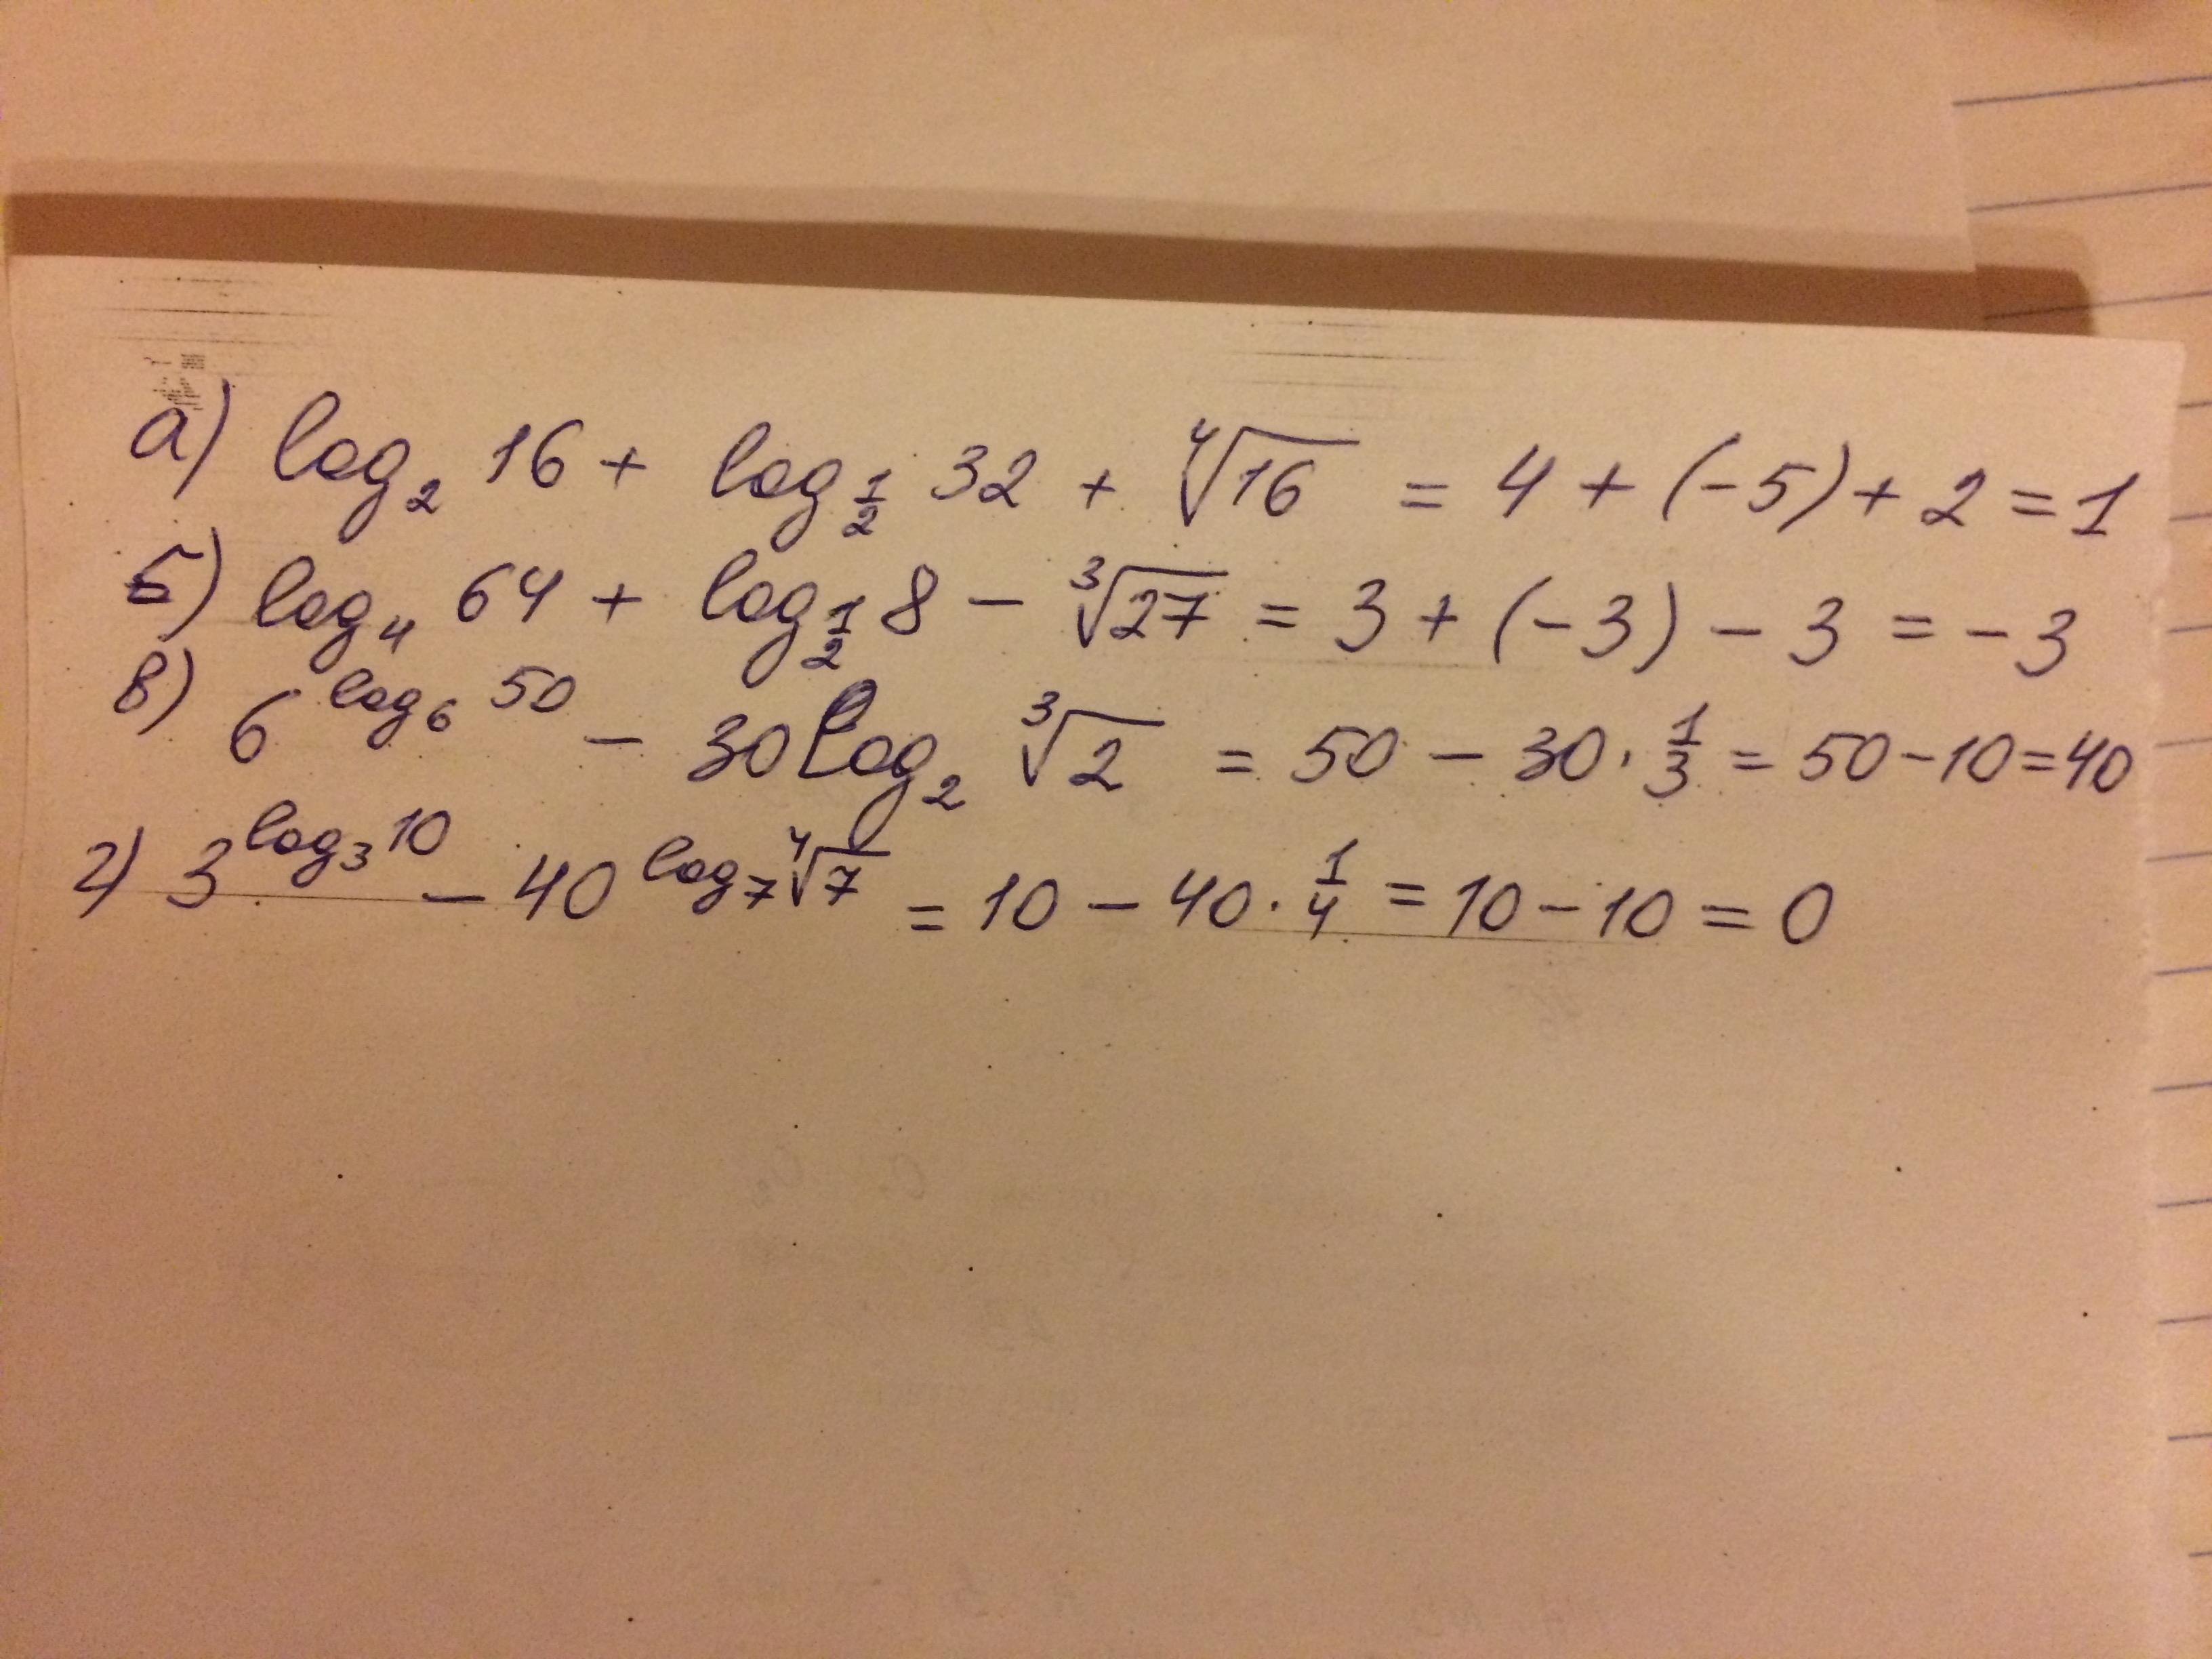 а) log₂ 16 + log_{1/2} 32 + ⁴√16 = 4 + (-5) + 2 = 1
б) log₄ 64 + log_{1/2} 8 - ³√27 = 3 + (-3) - 3 = -3
в) 6^{log₆ 50} - 30 log₂ ³√2 = 50 - 30 · 1/3 = 50 - 10 = 40
г) 3^{log₃ 10} - 40^{log₇ ⁴√7} = 10 - 40 · 1/4 = 10 - 10 = 0